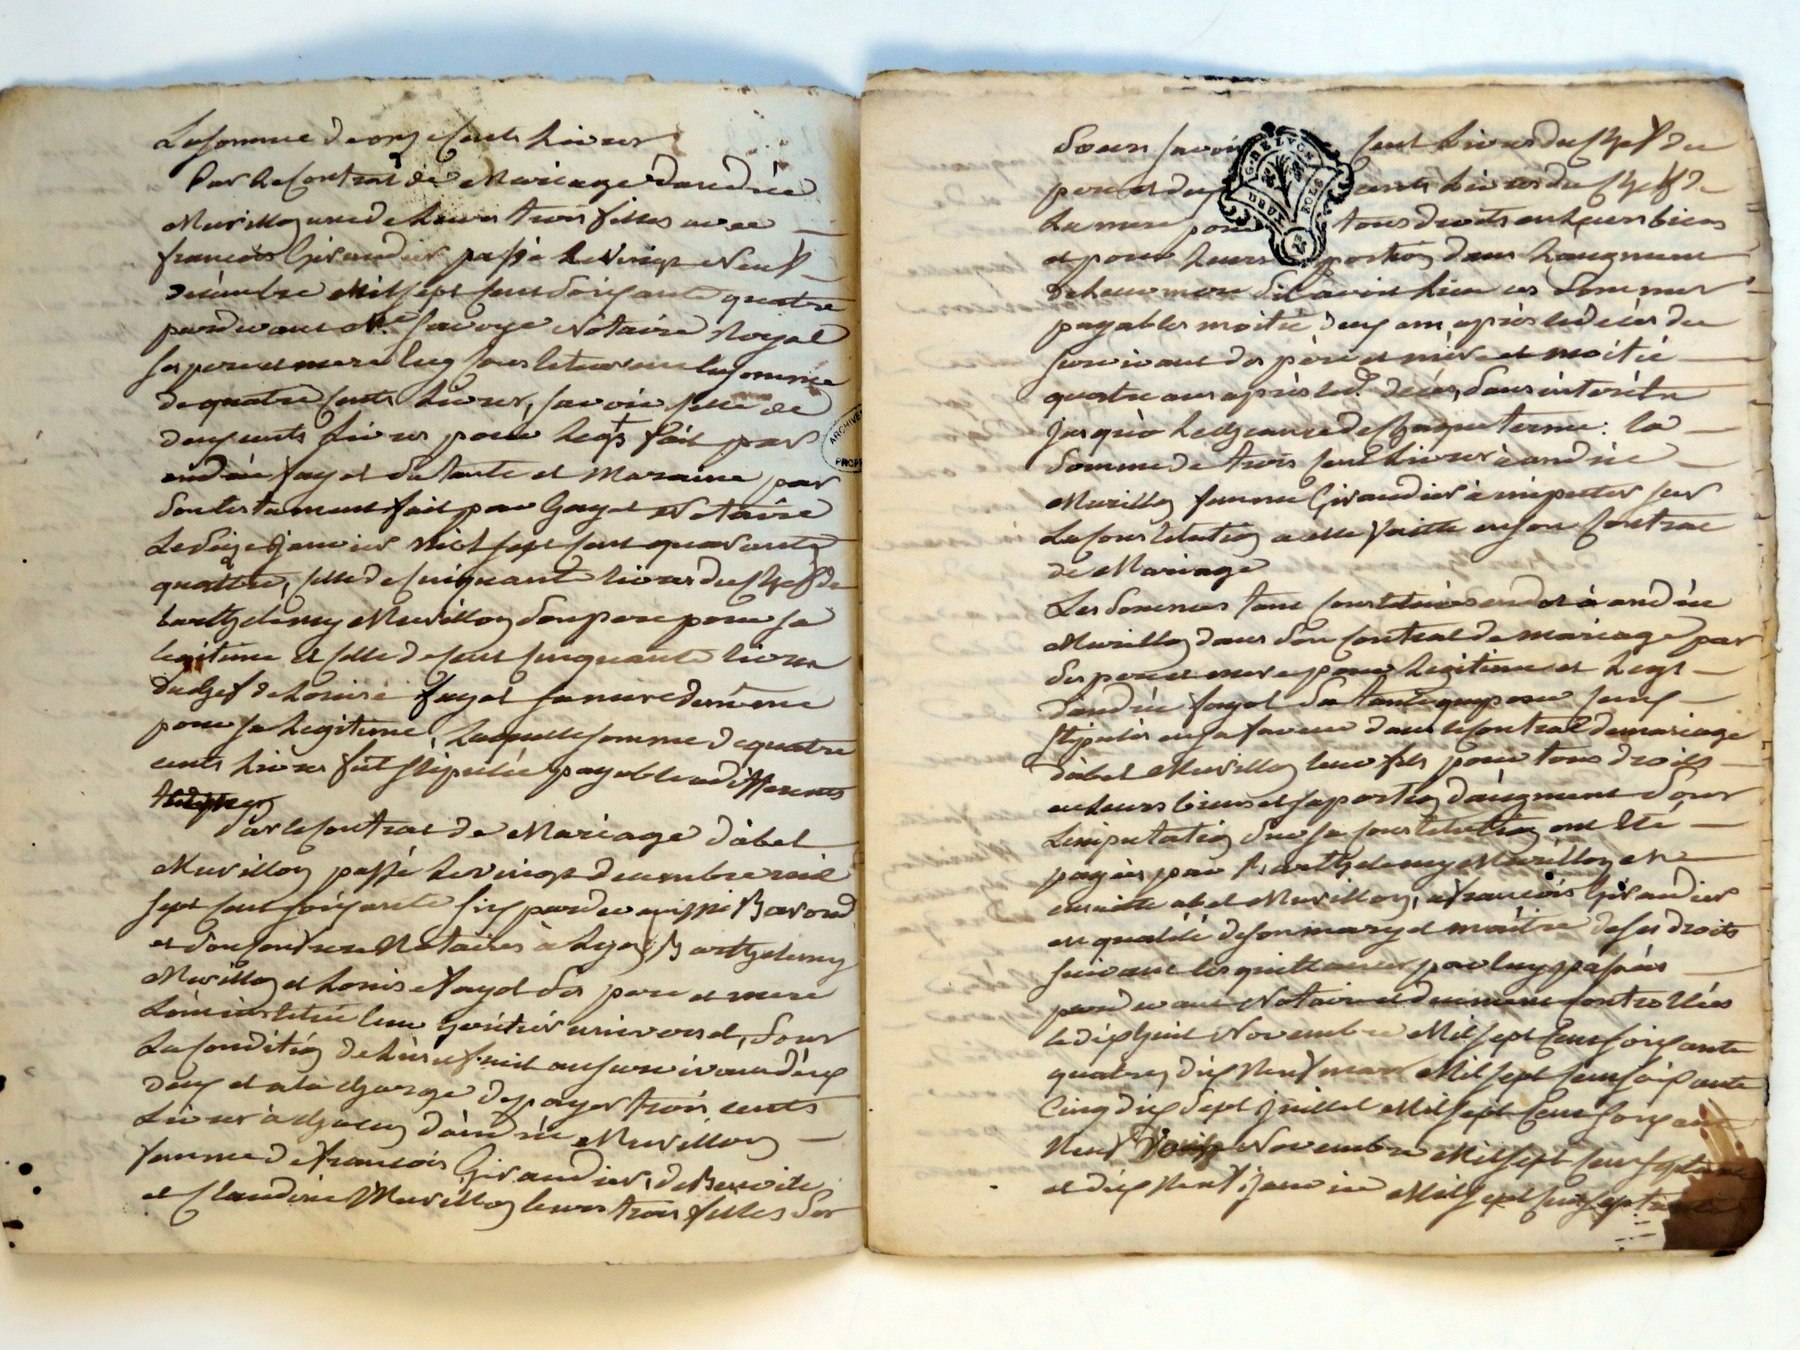 La somme de onze cents livres
Par le contrat de Mariage d'andrée
Murillon une de leurs trois filles avec
francois Giraudier passé le vingt neuf
decembre Mil sept cent soixante quatre
pardevant Me Savoye Notaire Royal
ses pere et mere luy la somme
de quatre cents livres, savoir celle de
deux cents livres pour legs fait par
andrée fayet sa tante et maraine par
son testament fait par Gayet Notaire
Le seize janvier Mil sept cent quarante
quattre, celle de cinquante livres du chef de
barthelemy Murillon son pere pour sa
legitime et celle de cent cinquante livres
du chef de Louise fayet sa mere
pour sa legitime, Laquelle somme de quatre
cents livres fut stipulée payable a differents
Par le contrat de Mariage d'abel
Murillon passé le vingt decembre mil
sept cent soixante six pardevant Baroud
et son confrere Notaires à Lyon Barthelemy
Murillon et Louise fayet ses pere et mere
L'ont institué leur heritier universel, sous
La condition de L'usufruit au survivant d'eux
deux et a la charge de payer trois cents
Livres à chacun d'andrée Murillon
femme de francois Giraudier, de Benoite
et Claudine Murillon leurs trois filles ses
Sœurs savoir cent livres du chef du
pere et deux cents livres du chef de
La mere pour tous droits en leurs biens
et pour leurs portion dans L'augment
de leur mere s'il avoit lieu ces sommes
payables moitié deux ans après le décès du
survivant des père et mère et moitié
quatre ans après led. décès, sans intérêts
jusqu'à L'echeance de chaque terme. la
somme de trois cent livres à andrée
Murillon femme Giraudier à imputer sur
La constitution a elle faitte en son contrat
de Mariage
Les sommes tant constituées à andrée
Murillon dans son contrat de mariage par
ses pere et mere pour legitime et legs
d'andrée fayet sa tante que pour ceux
stipulés en sa faveur dans le contrat de mariage
d'abel Murillon leur fils pour tous droits
en leurs biens et sa portion d'augment sous
L'imputation sur sa constitution ont été
payées par Barthelemy Murillon et
ensuitte abel Murillon, a francois Giraudier
en qualité de son mary et maître de ses droits
suivant les quittances par luy passées
pardevant Notaire et controllées
le dix huit Novembre Mil sept cent soixante
quatre, dix neuf mars Mil sept cent soixante
Cinq dix sept juillet Mil sept cent soixante
Neuf Novembre Mil sept cent septante
et dix neuf janvier Mil sept cent septante
G. DE LYON
DEUX SOLS
ARCHIVES
PROP